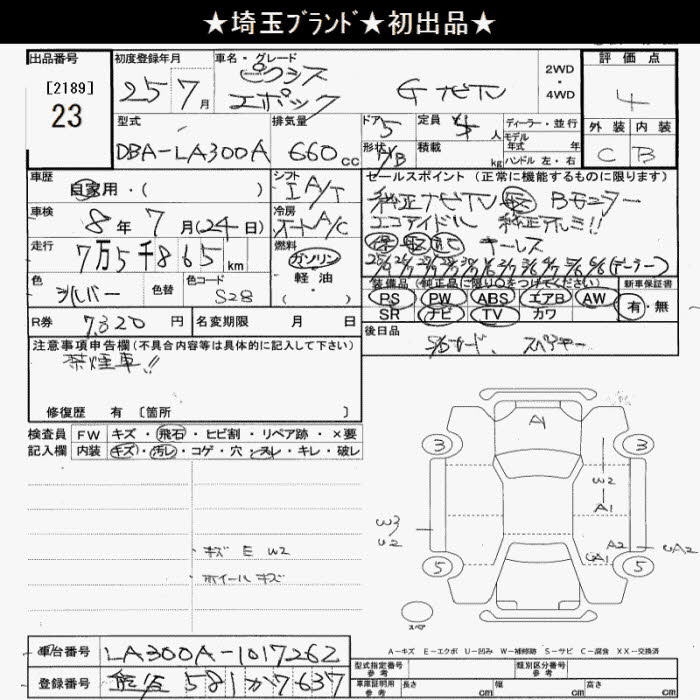 ★埼玉ﾌﾞﾗﾝﾄﾞ★初出品★
出品番号
[2189]
23
初度登録年月
25 7月
車名・グレード
ピクシス
エポック
G ナビTV
2WD
・
4WD
評価点
4
外装 内装
C B
型式
DBA-LA300A
排気量
660cc
ドア 5
定員 4人
ディーラー・並行
モデル年式 年式
形状 H/B
積載 kg
ハンドル 左・右
車歴
自家用・( )
シフト
IA/T
車検
8年7月(24日)
冷房
オートA/C
走行
7万5千865km
燃料
ガソリン
軽油
( )
色
シルバー
色替
色コード
S28
R券
7,320円
名変期限 月 日
セールスポイント(正常に機能するものに限ります)
純正ナビTV Bモニター
エコアイドル 純正アルミ!!
キーレス
装備品(純正品に限り○をつけてください)
PS PW ABS エアB AW
SR ナビ TV カワ
新車保証書
有・無
後日品
スペアキー
注意事項申告欄(不具合内容等は具体的に記入して下さい)
禁煙車!!
修復歴 有 [箇所 ]
検査員
記入欄
FW キズ・飛石・ヒビ割・リペア跡・×要
内装 キズ・汚レ・コゲ・穴・スレ・キレ・破レ
・キズ E W2
・ホイールキズ
A1
3
3
W2
A1
W3
U2
A2
UA1
UA2
5
5
スペア
A－キズ E－エクボ U－凹み W－補修跡 S－サビ C－腐食 XX－交換済
車台番号
LA300A-1017262
登録番号
熊谷 581か7637
型式指定番号
参考
類別区分番号
参考
車庫証明用
参考
長さ cm
幅 cm
高さ cm